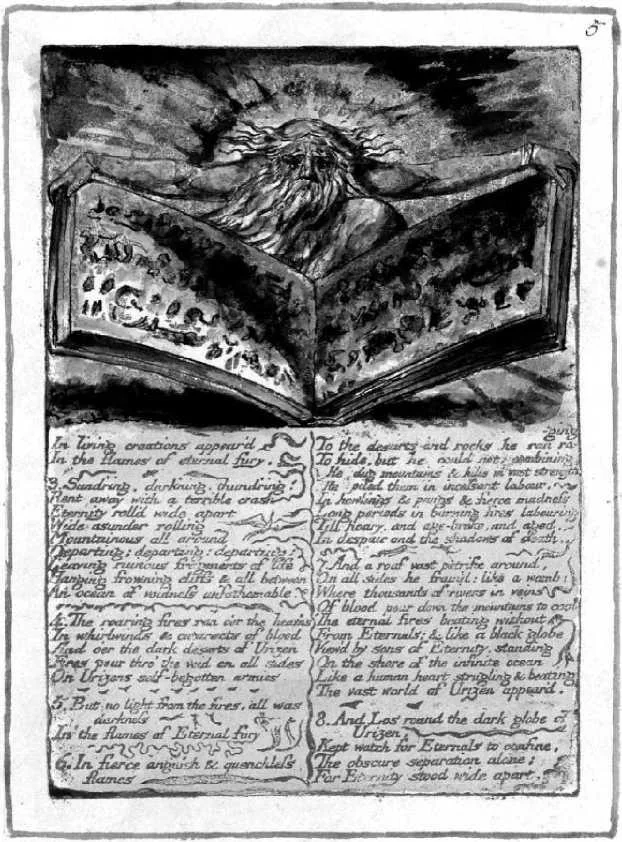 5
In living creations appear'd
In the flames of eternal fury.
3. Sundring, dark'ning, thund'ring!
Rent away with a terrible crash
Eternity roll'd wide apart
Wide asunder rolling
Mountainous all around
Departing; departing; departing:
Leaving ruinous fragments of life
Hanging frowning cliffs & all between
An ocean of voidness unfathomable.
4. The roaring fires ran o'er the heav'ns
In whirlwinds & cataracts of blood
And o'er the dark desarts of Urizen
Fires pour thro' the void on all sides
On Urizens self-begotten armies.
5. But no light from the fires, all was
darkness
In the flames of Eternal fury
6. In fierce anguish & quenchless
flames
To the desarts and rocks he ran ra-
ging
To hide, but he could not; combining
He dug mountains & hills in vast strength,
He piled them in incessant labour,
In howlings & pangs & fierce madness
Long periods in burning fires labouring
Till hoary, and age-broke, and aged,
In despair and the shadows of death.
7. And a roof vast petrific around,
On all sides he fram'd: like a womb;
Where thousands of rivers in veins
Of blood pour down the mountains to cool
The eternal fires beating without
From Eternals; & like a black globe
View'd by sons of Eternity, standing
On the shore of the infinite ocean
Like a human heart strugling & beating
The vast world of Urizen appear'd.
8. And Los round the dark globe of
Urizen,
Kept watch for Eternals to confine,
The obscure separation alone;
For Eternity stood wide apart,